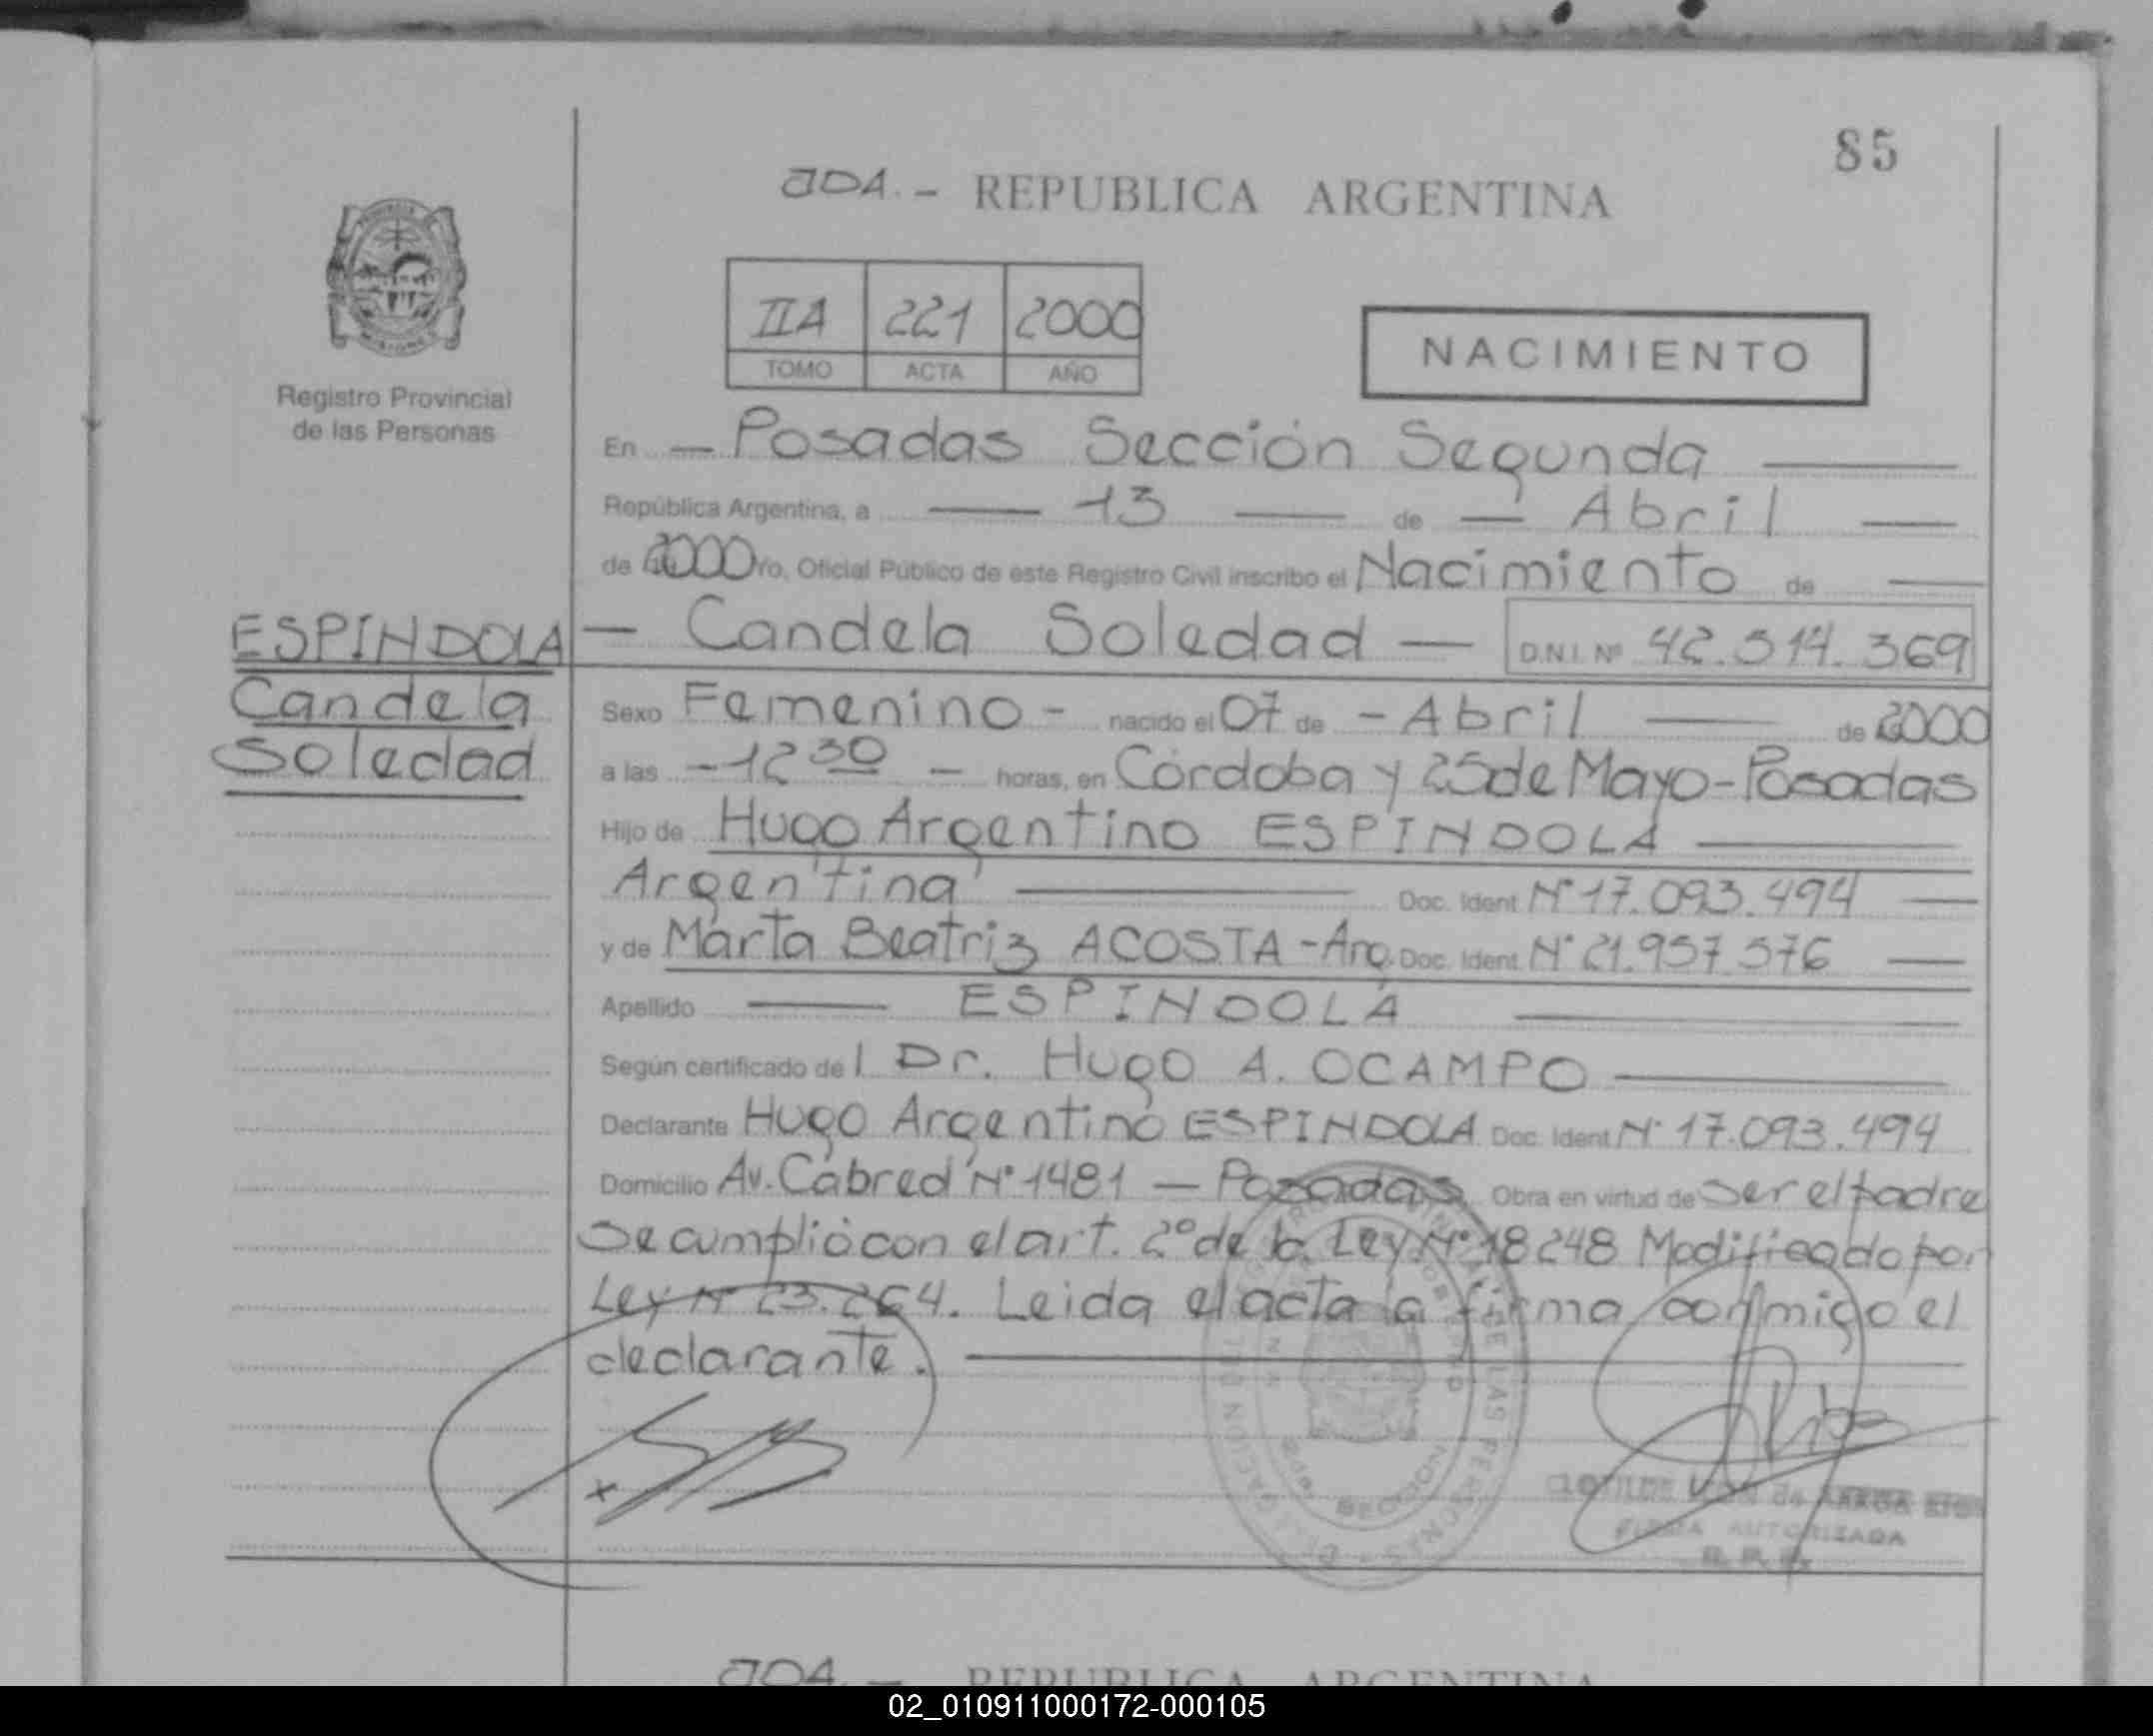 85
REPUBLICA ARGENTINA
IIA 221 2000
TOMO ACTA AÑO
NACIMIENTO
Registro Provincial
de las Personas
En - Posadas Sección Segunda
República Argentina, a 13 de Abril
de 2000 Yo, Oficial Público de este Registro Civil inscribo el Nacimiento de
ESPINDOLA
Candela
Soledad
- Candela Soledad - D.N.I. Nº 42.314.369
Sexo Femenino - nacido el 07 de - Abril de 2000
a las - 12 30 - horas, en Córdoba y 25 de Mayo - Posadas
Hijo de Hugo Argentino ESPINDOLA
Argentina Doc. Ident. Nº 17.093.494
y de Marta Beatriz ACOSTA - Arg. Doc. Ident. Nº 21.957.576
Apellido ESPINDOLA
Según certificado del Dr. Hugo A. OCAMPO
Declarante Hugo Argentino ESPINDOLA Doc. Ident. Nº 17.093.494
Domicilio Av. Cabred Nº 1481 - Posadas Obra en virtud de ser el padre
Se cumplió con el art. 2º de la Ley Nº 18248 Modificado por
Ley Nº 23.264. Leida el acta la firma conmigo el
declarante.
FIRMA AUTORIZADA
REPUBLICA ARGENTINA
02_010911000172-000105